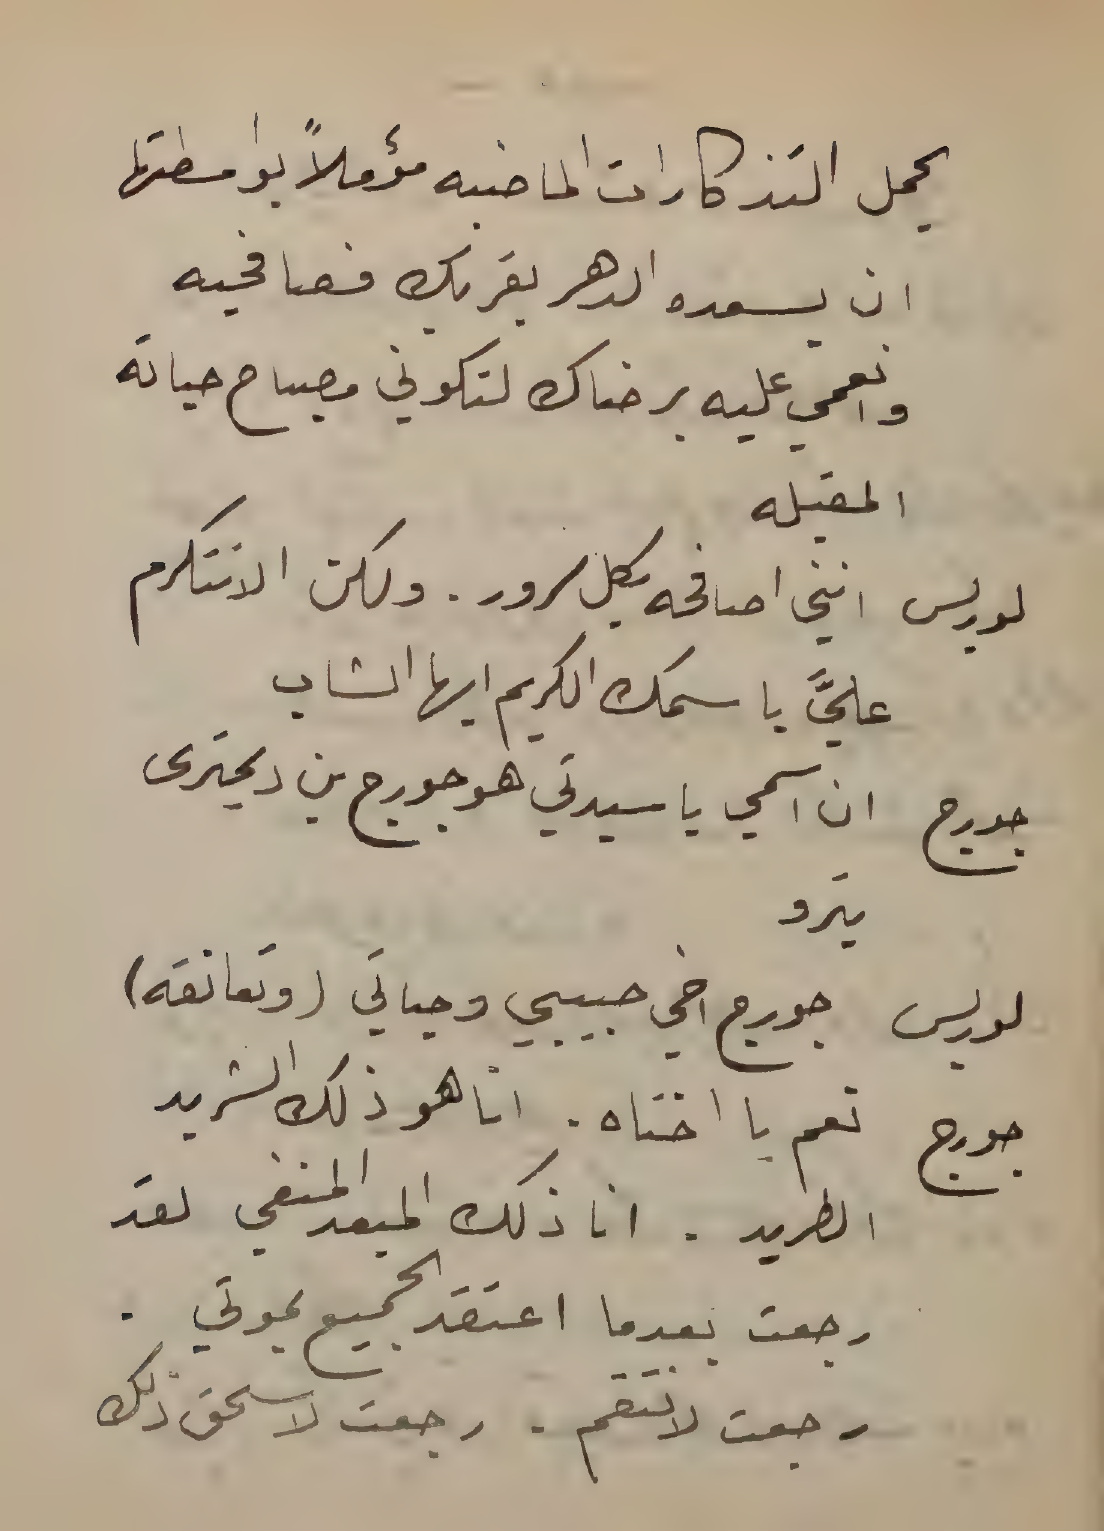 يحمل التذكارات الماضيه مؤملاً بواسطتها
ان يسعده الدهر بقربك فصافحيه
وانعمي عليه برضاك لتكوني مصباح حياته
المقبله
لوريس انني اصافحه بكل سرور . ولكن الا تتكرم
عليَّ باسمك الكريم ايها الشاب
جورج ان اسمي يا سيدتي هو جورج بن ديمترى
يترو
لوريس جورج اخي حبيبي وحياتي (وتعانقه)
جورج نعم يا اختاه . انا هو ذلك الشريد
الطريد . انا ذلك المبعد المنفي لقد
رجعت بعدما اعتقد الجميع بموتي .
رجعت لانتقم . رجعت لاسحق ذلك